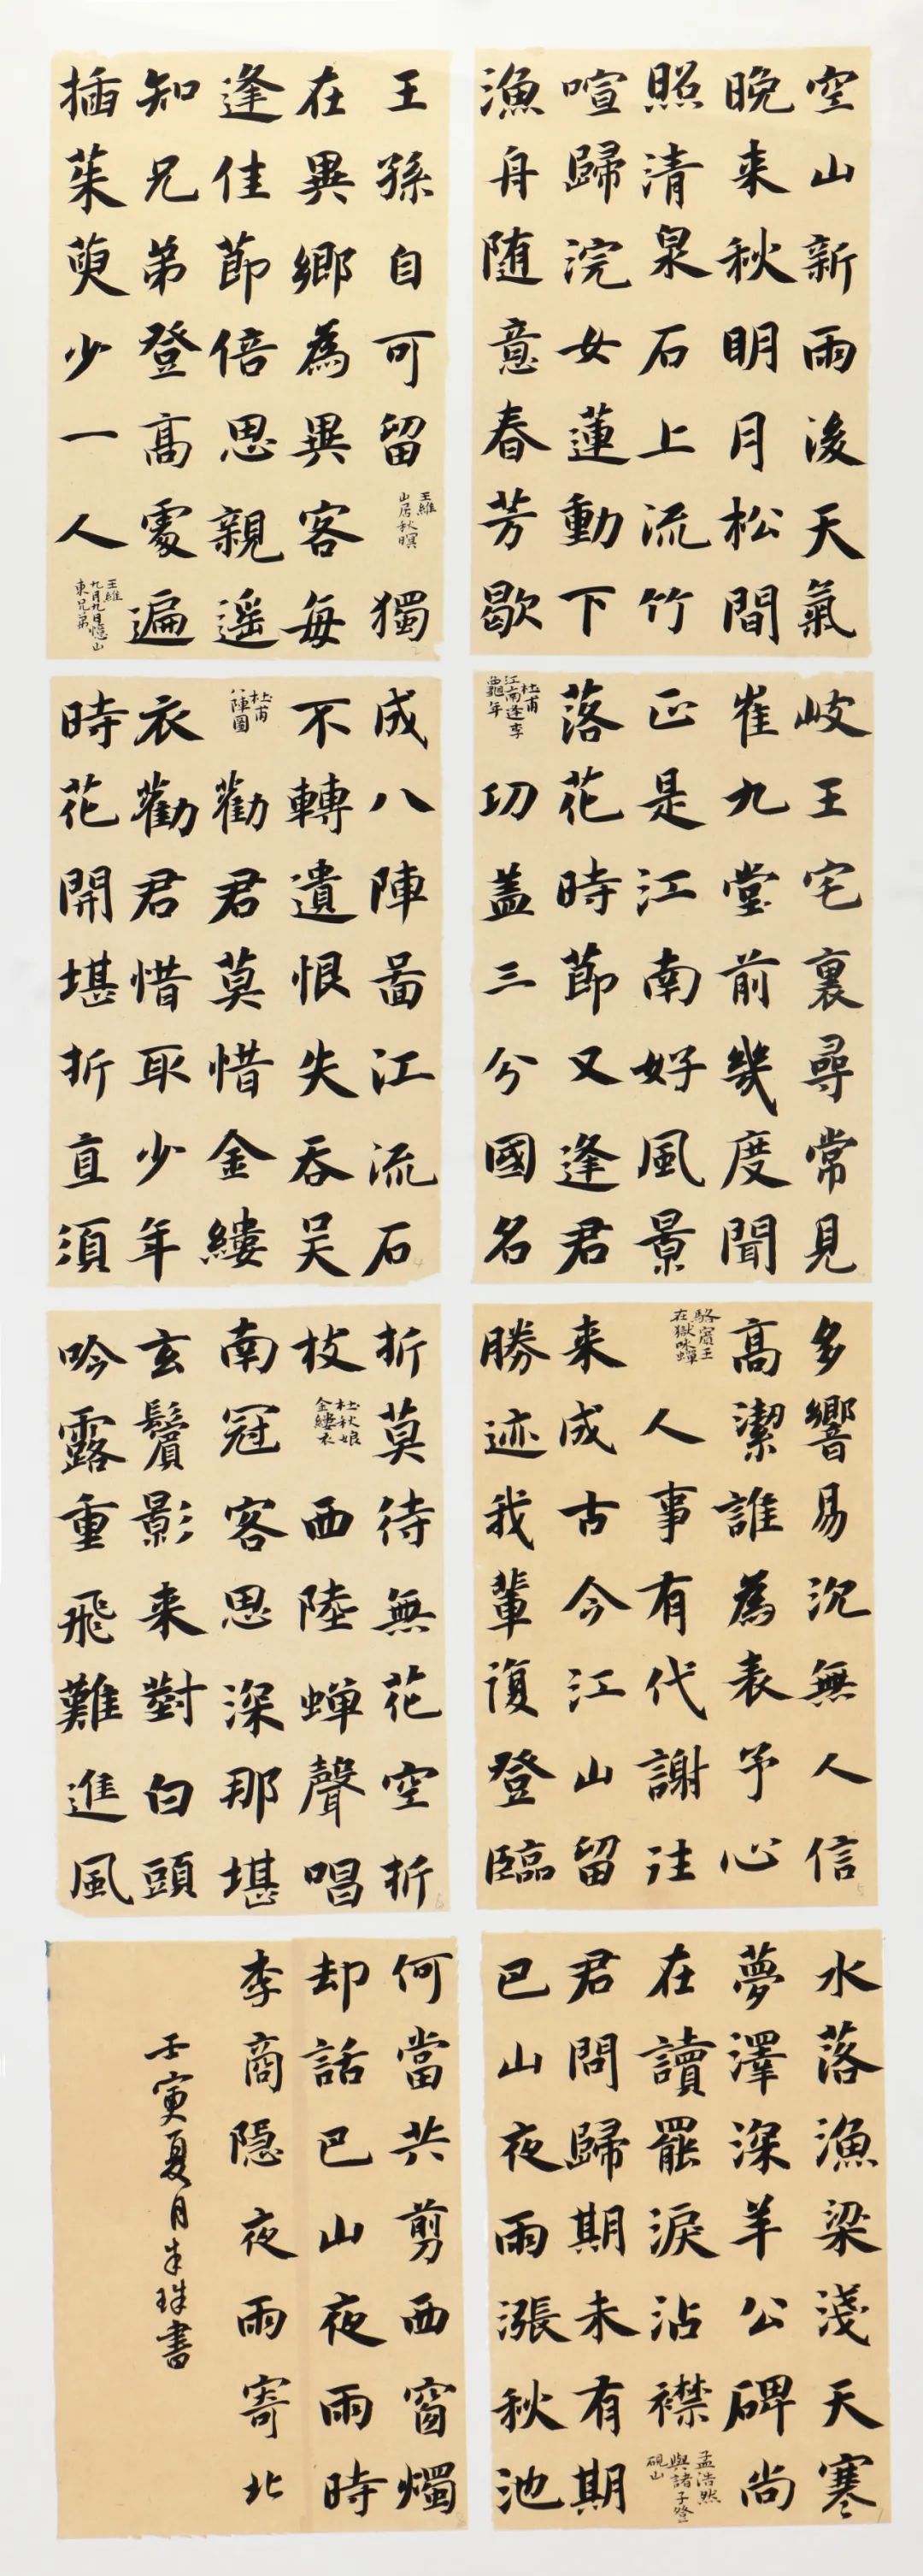 空山新雨後天氣
晚来秋明月松間
照清泉石上流竹
喧歸浣女蓮動下
漁舟随意春芳歇
王孫自可留
王維
山居秋暝
獨
在異鄉為異客每
逢佳節倍思親遥
知兄弟登高處遍
插茱萸少一人
王維
九月九日憶山
東兄弟
岐王宅裏尋常見
崔九堂前幾度聞
正是江南好風景
落花時節又逢君
杜甫
江南逢李
龜年
功蓋三分國名
成八陣啚江流石
不轉遺恨失吞吴
杜甫
八陣圖
勸君莫惜金縷
衣勸君惜取少年
時花開堪折直須
折莫待無花空折
枝
杜秋娘
金縷衣
西陸蟬聲唱
南冠客思深那堪
玄鬢影来對白頭
吟露重飛難進風
多響易沉無人信
高潔誰為表予心
駱賓王
在獄咏蟬
人事有代謝往
来成古今江山留
勝迹我輩復登臨
水落漁梁淺天寒
夢澤深羊公碑尚
在讀罷淚沾襟
孟浩然
與諸子登
硯山
君問歸期未有期
巴山夜雨漲秋池
何當共剪西窗燭
却話巴山夜雨時
李商隱夜雨寄北
壬寅夏月朱珠書